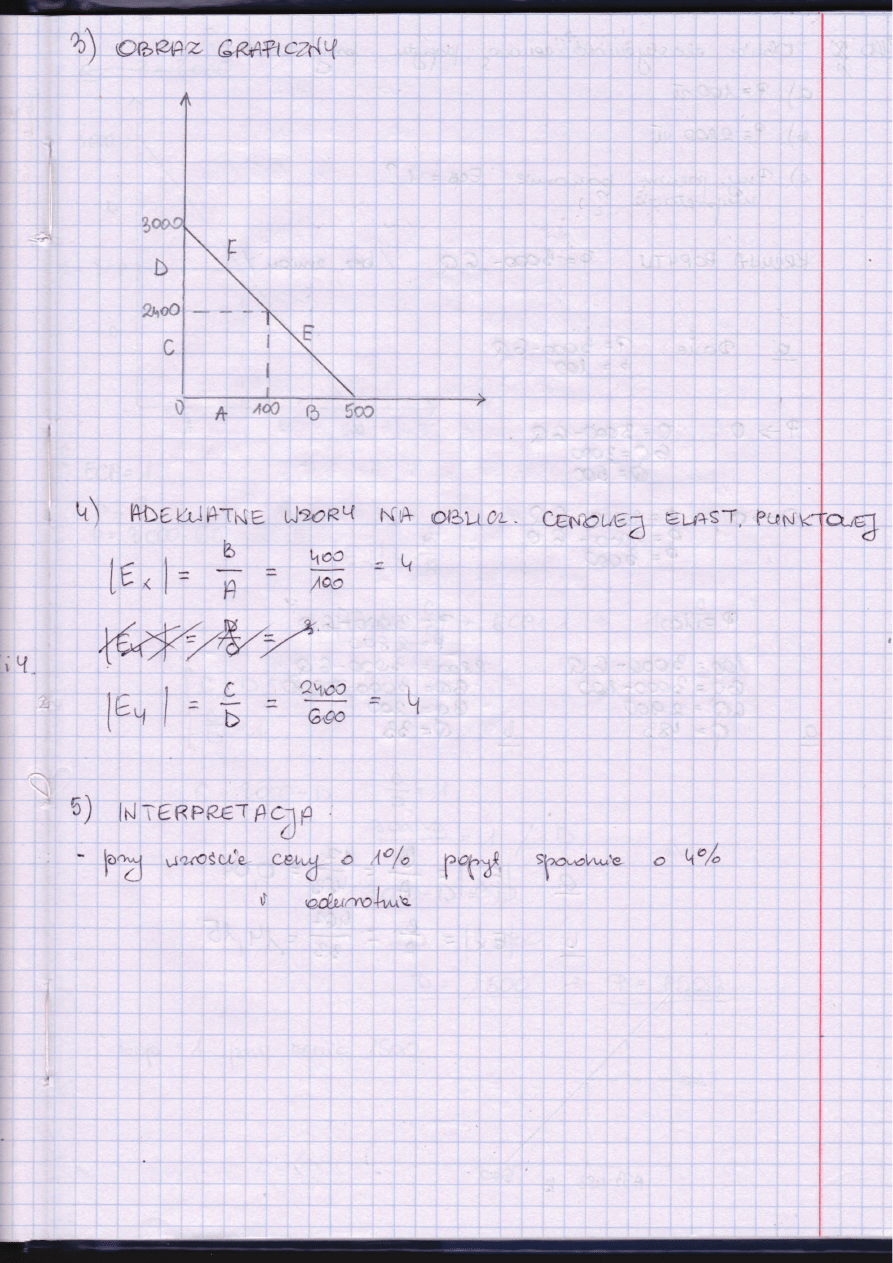 3) OBRAZ GRAFICZNY
3000
F
D
2400
E
C
0 A 100 B 500
4) ADEKWATNE WZORY NA OBLICZ. CENOWEJ ELAST. PUNKTOWEJ
|Ex| = B/A = 400/100 = 4
i 4.
|E4| = C/D = 2400/600 = 4
5) INTERPRETACJA:
- przy wzroście ceny o 1% popyt spadnie o 4%
i odwrotnie